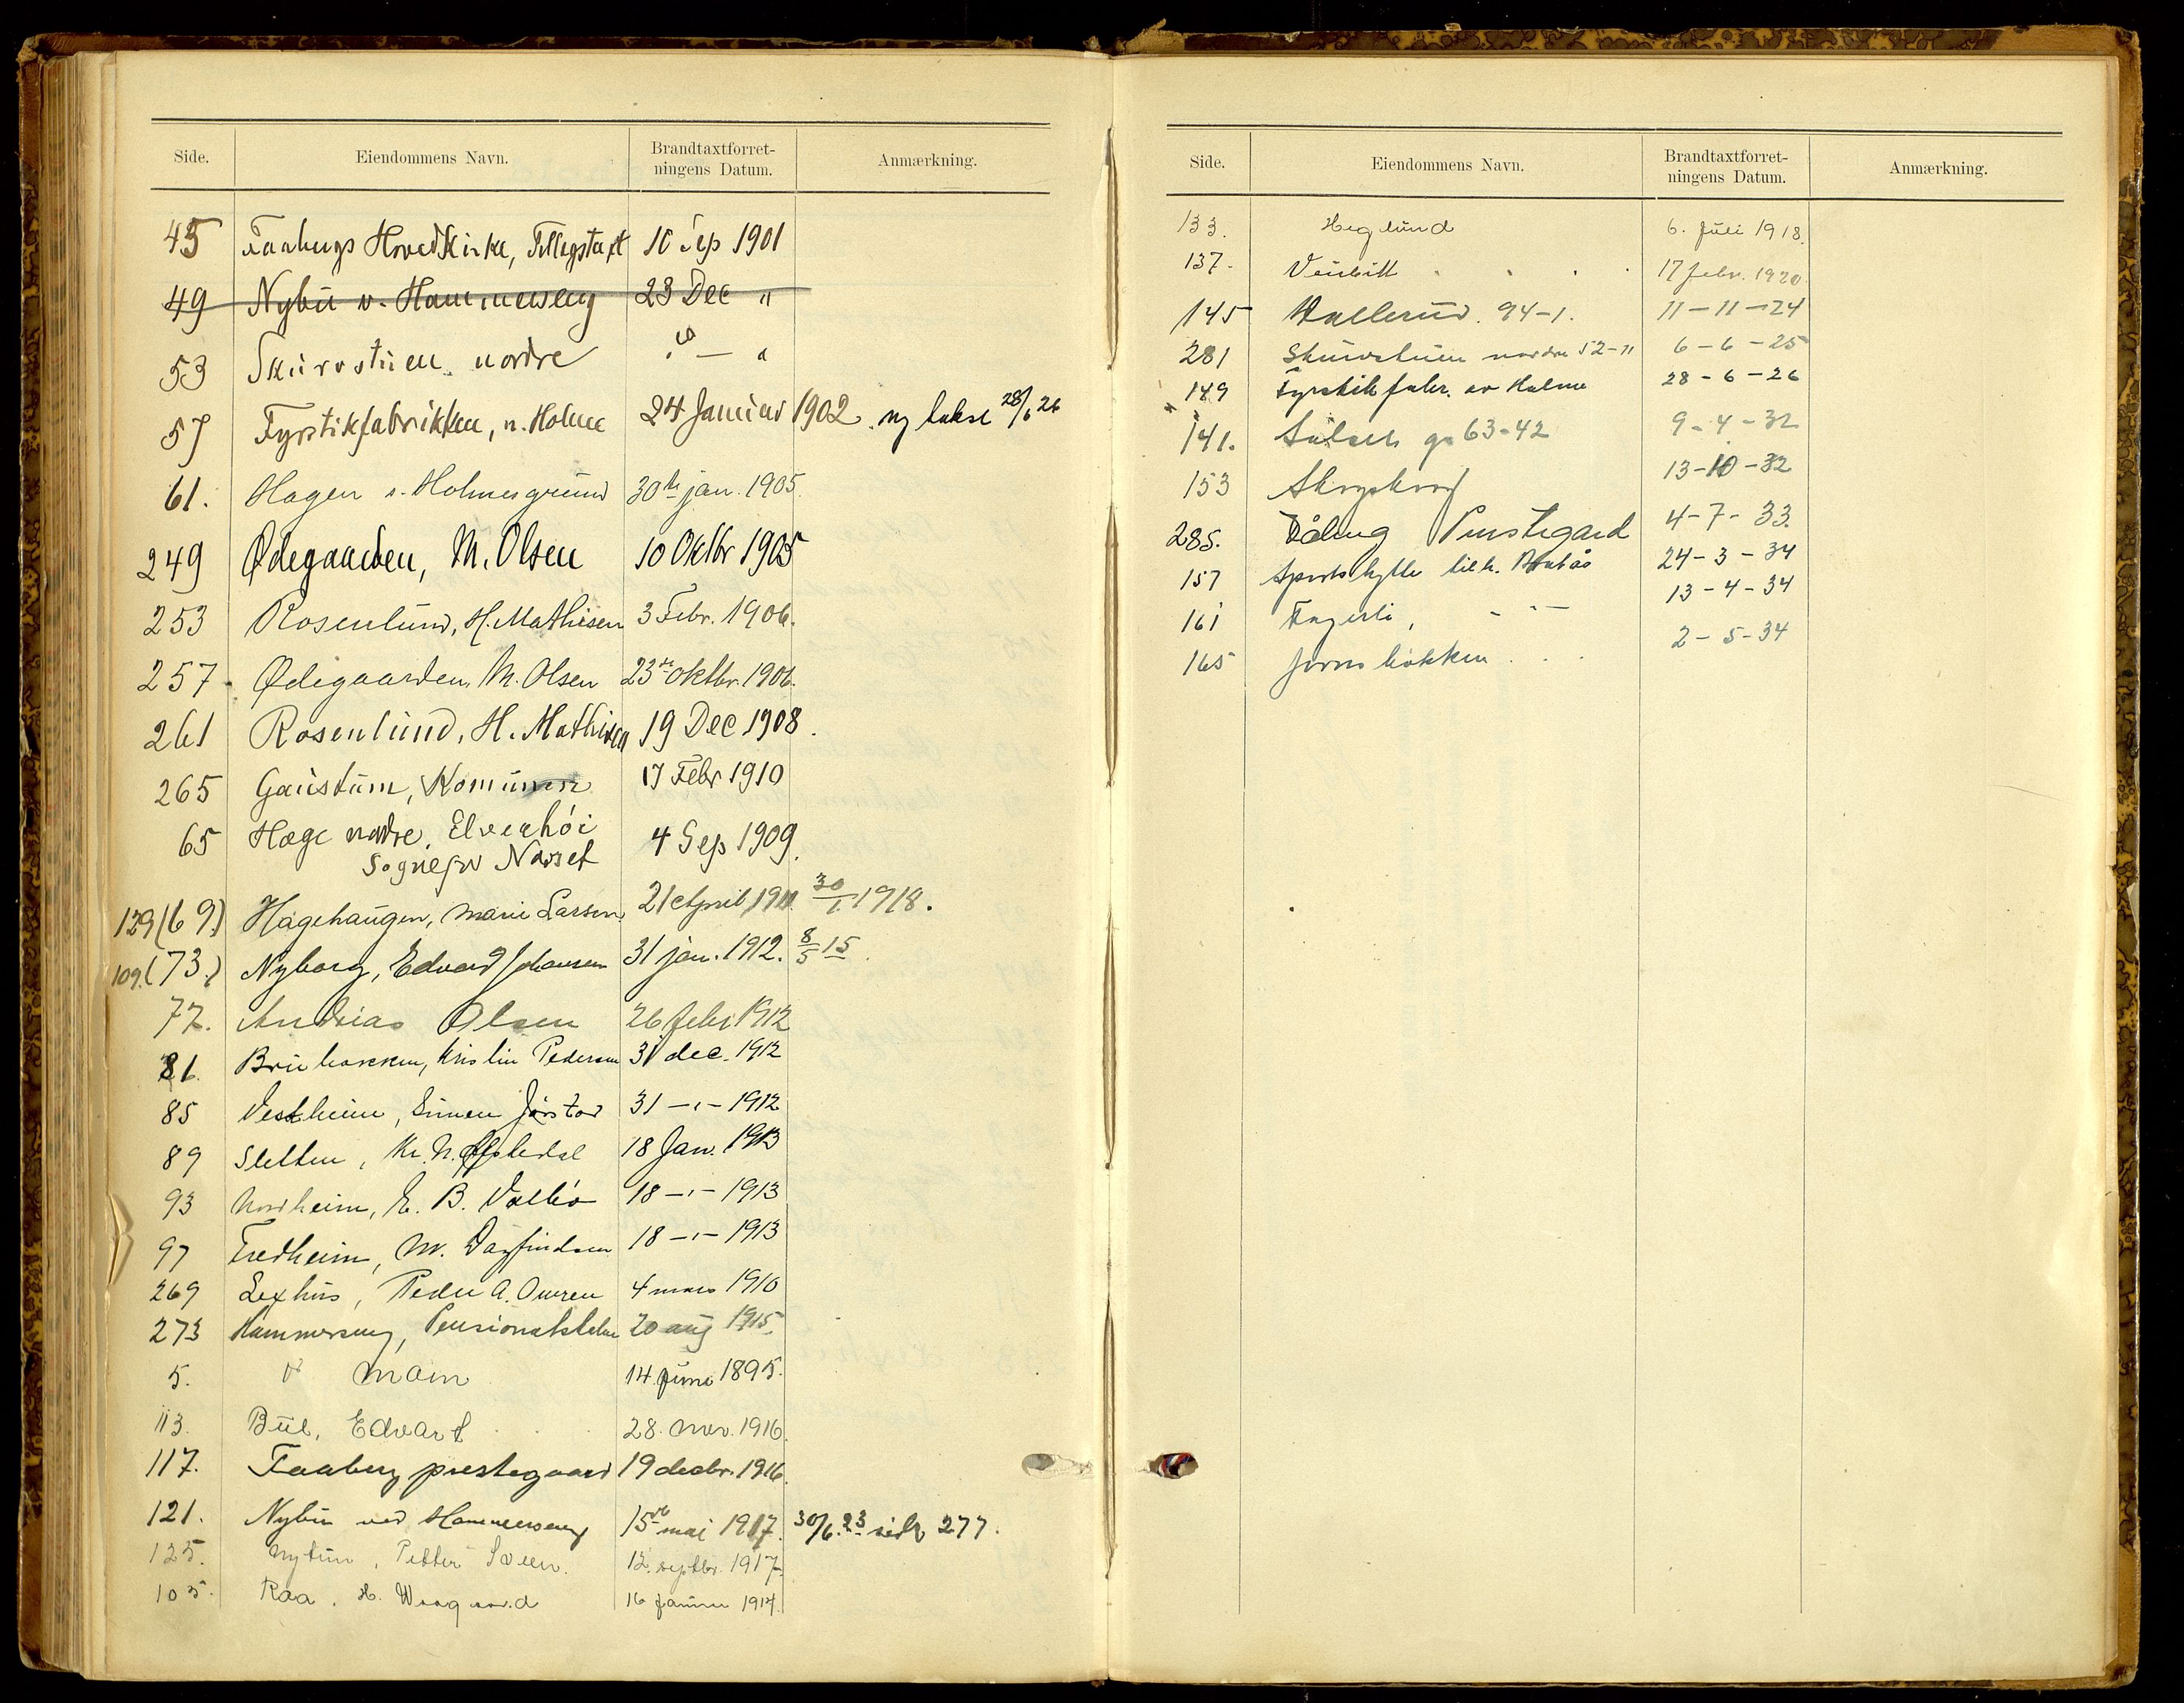 Side. Eiendommens Navn. Brandtaxtforret-ningens Datum. Anmærkning.
45 Faabergs Hovedkirke, Tillægstaxt 10 Sep 1901
49 Nybu v. Hammerseng 23 Dec "
53 Skurvstuen nordre " — "
57 Fyrstikfabrikken, n. Holme 24 Januar 1902. ny takst 28/6 26
61. Hagen s. Holmesgrund 30te jan. 1905.
249 Ødegaarden, M. Olsen 10 Oktbr 1905
253 Rosenlund, H. Mathisen 3 Febr. 1906.
257. Ødegaarden, M. Olsen 23de oktbr. 1906.
261 Rosenlund, H. Mathisen 19 Dec 1908.
265 Gaustum, Komunen 17 Febr 1910
65 Hæge nordre, Elverhói 4 Sep 1909.
Sognepr Norset
129 (69.) Hagehaugen, Marie Larsen. 21 April 1911. 30/1 1918.
109. (73.) Nyborg, Edvard Johansen 31 jan. 1912. 8/5 15.
77. Andreas Olsen 26 febr 1912
81. Bru bakken, Kristin Pedersen 31 dec. 1912
85 Vestheim, Simen Jørstad 31 -,- 1912
89 Sletten, Kr. N. 18 Jan. 1913
93 Nordheim, E. B. 18 -,- 1913
97 Fredheim, M. Dagfindsen 18 -,- 1913
269 Lexhus, Peder A. Owren 4 mars 1910
273 Hammerseng, 20 aug 1915.
5. " 14 juni 1895.
113. Edvart 28. nov. 1916.
117. Faaberg prestegaard 19 decbr. 1916.
121. Nybu ved Hammerseng 15de mai 1917. 30/6. 23 side 277.
125. Nytun, Petter Sveen. 12. septbr. 1917.
105. Raa, H. 16 Januar 1914.
Side. Eiendommens Navn. Brandtaxtforret-ningens Datum. Anmærkning.
133. Heglund 6. Juli 1918.
137. 17 febr. 1920.
145 Vallerud. 94-1. 11-11-24
281 Skurvstuen nordre 52-11 6-6-25
149 Fyrstikfabr. av Holme 28-6-26
141. gn 63-42 9-4-32
153 13-10-32
285. Fåberg Prestegard 4-7-33.
157 Sportshytte 24-3-34
161 Fagerli, - " - 13-4-34
165 2-5-34